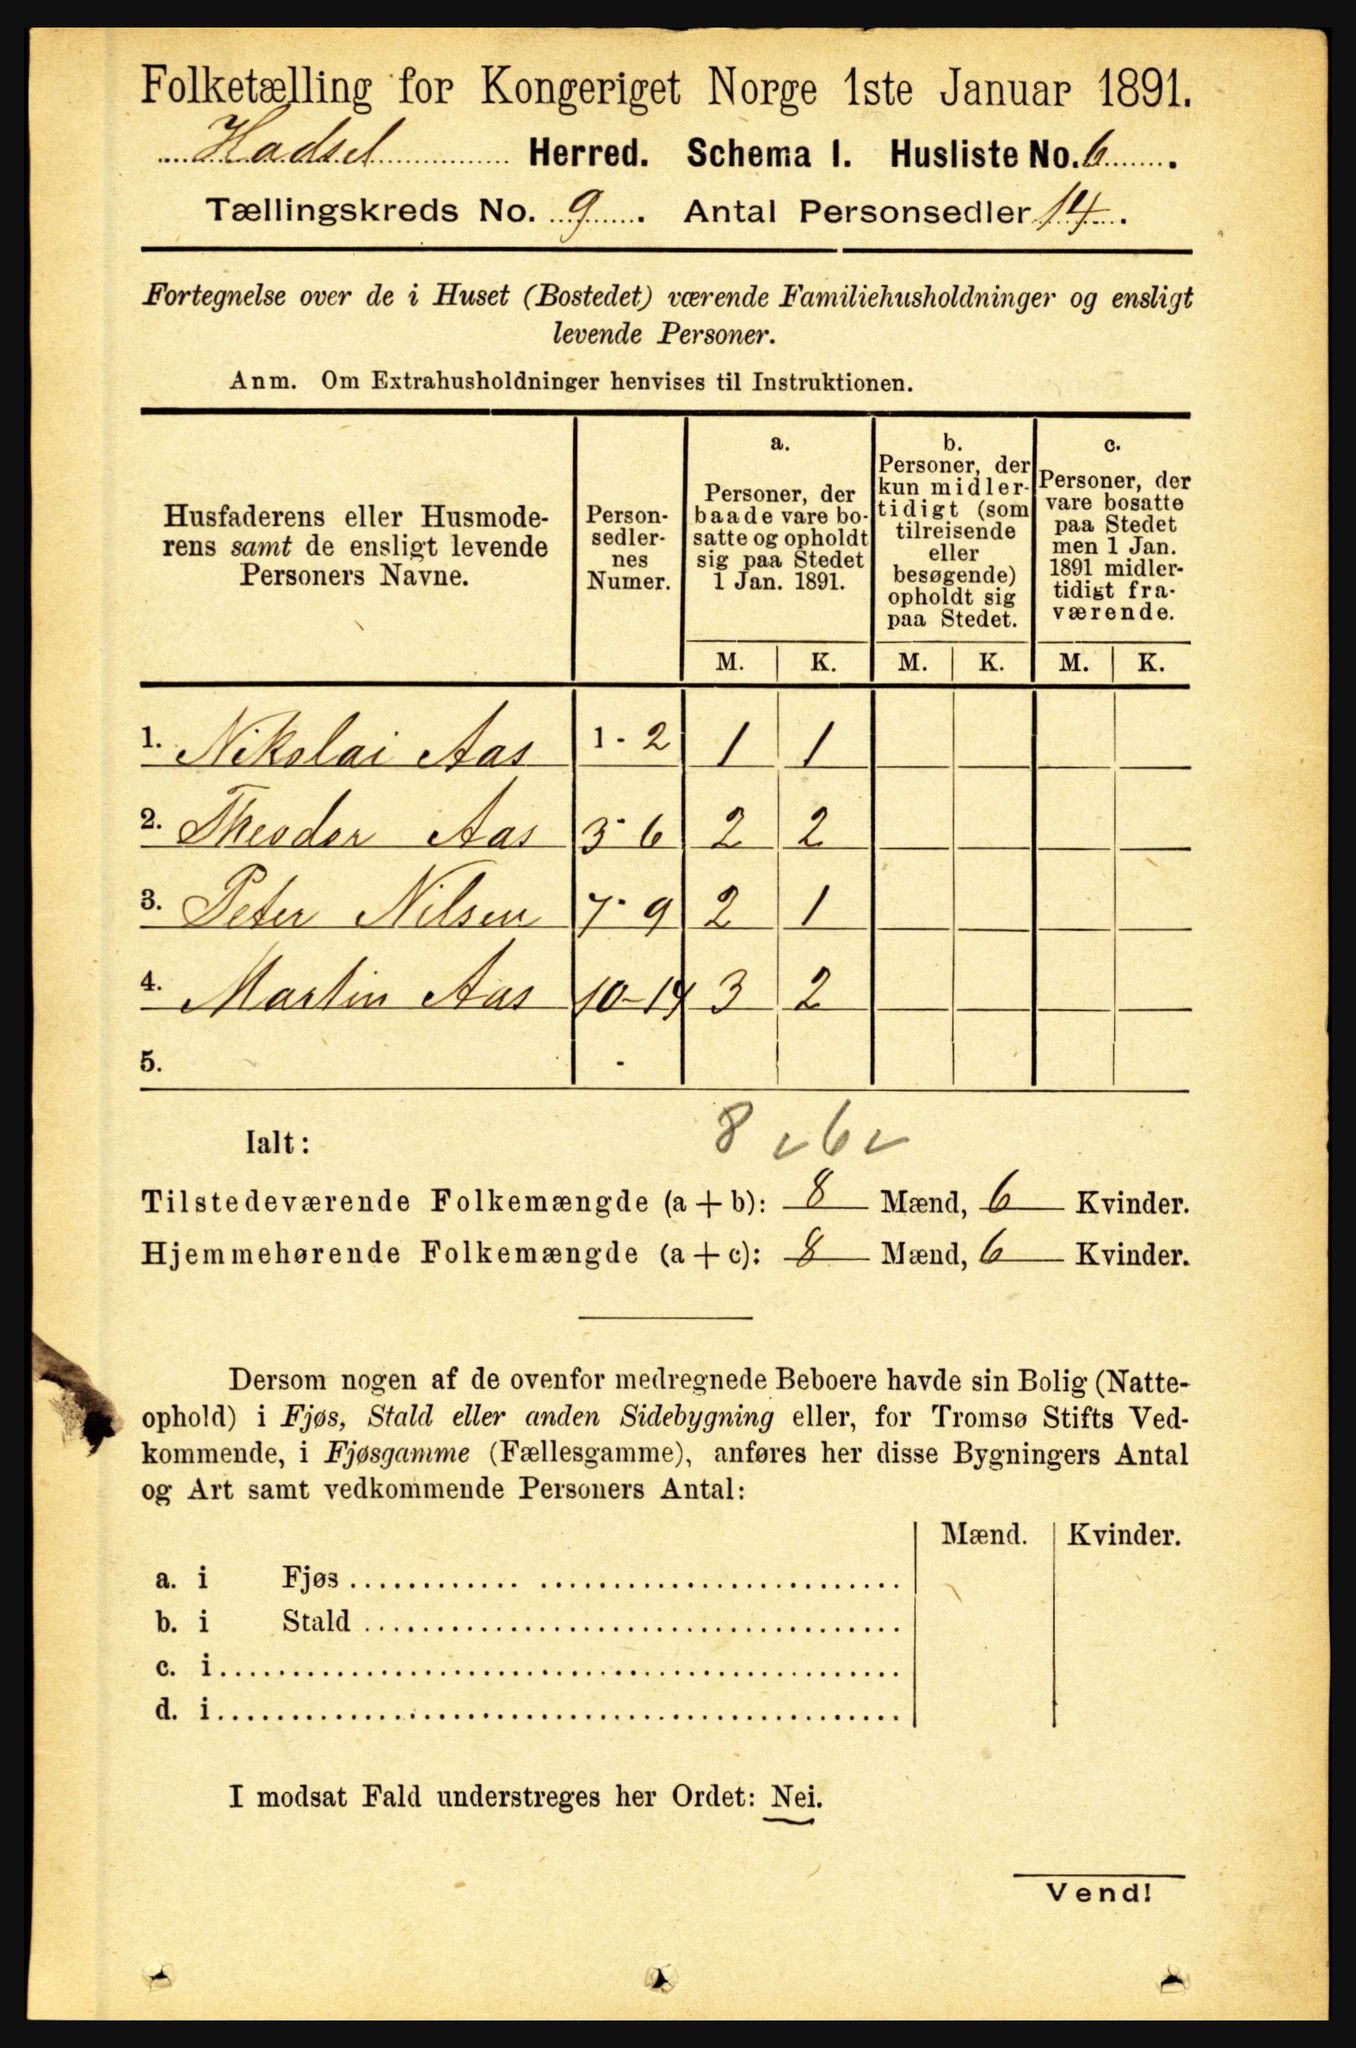 Folketælling for Kongeriget Norge 1ste Januar 1891.
Hadsel Herred. Schema I. Husliste No. 6.
Tællingskreds No. 9. Antal Personsedler 14.
Fortegnelse over de i Huset (Bostedet) værende Familiehusholdninger og ensligt
levende Personer.
Anm. Om Extrahusholdninger henvises til Instruktionen.
Husfaderens eller Husmode-
rens samt de ensligt levende
Personers Navne.
Person-
sedler-
nes
Numer.
a.
Personer, der
baade vare bo-
satte og opholdt
sig paa Stedet
1 Jan. 1891.
b.
Personer, der
kun midler-
tidigt (som
tilreisende
eller
besøgende)
opholdt sig
paa Stedet.
c.
Personer, der
vare bosatte
paa Stedet
men 1 Jan.
1891 midler-
tidigt fra-
værende.
M. K. M. K. M. K.
1. Nikolai Aas 1 - 2 1 1
2. Theodor Aas 3 - 6 2 2
3. Peter Nilsen 7 - 9 2 1
4. Martin Aas 10 - 14 3 2
5. -
Ialt: 8 6
Tilstedeværende Folkemængde (a + b): 8 Mænd, 6 Kvinder.
Hjemmehørende Folkemængde (a + c): 8 Mænd, 6 Kvinder.
Dersom nogen af de ovenfor medregnede Beboere havde sin Bolig (Natte-
ophold) i Fjøs, Stald eller anden Sidebygning eller, for Tromsø Stifts Ved-
kommende, i Fjøsgamme (Fællesgamme), anføres her disse Bygningers Antal
og Art samt vedkommende Personers Antal:
Mænd. Kvinder.
a. i Fjøs
b. i Stald
c. i
d. i
I modsat Fald understreges her Ordet: Nei.
Vend!